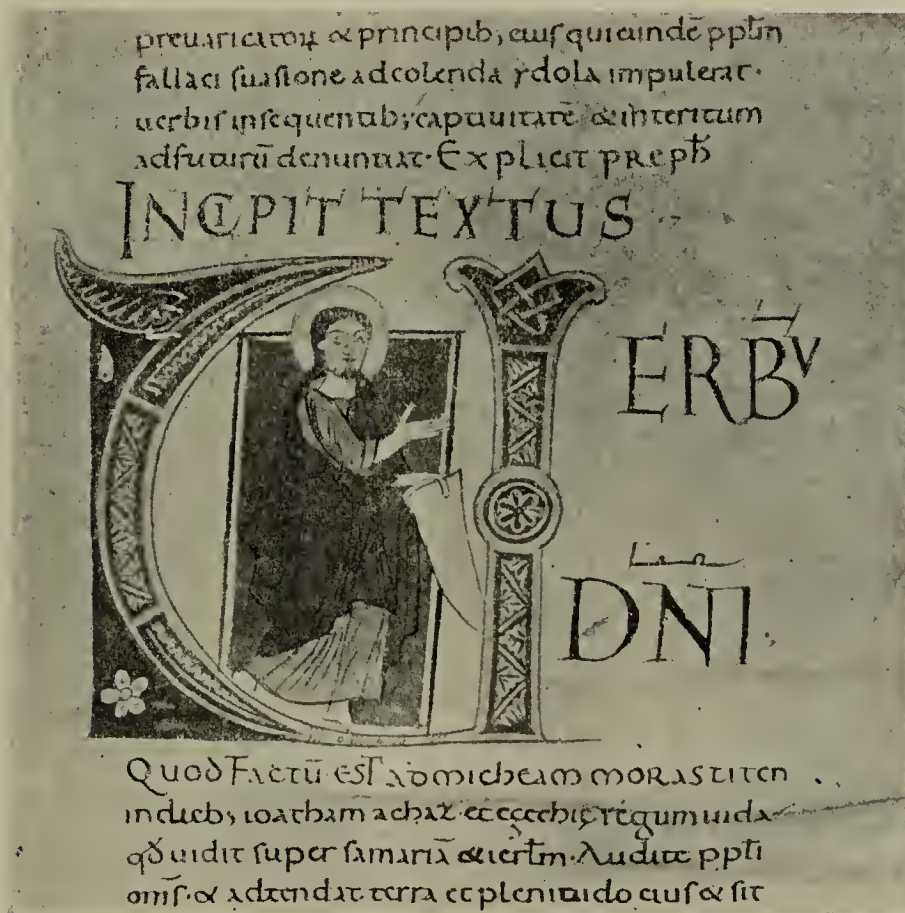 preuaricatoꝝ & principib; eius qui eundē ppłm
fallaci suasione ad colenda ydola impulerat·
uerbis insequentib; captiuitatē & interitum
adfuturū denuntiat· Explicit p̄reph
INCIPIT TEXTUS
UERBŪ
DN̄I
Quod factū est ad micheam morastiten
indieb; ioatham achaz· et ezechię regum iuda·
qđ uidit super samariā & ierłm· Audite ppłi
om̄s· & adtendat terra et plenitudo eius & sit